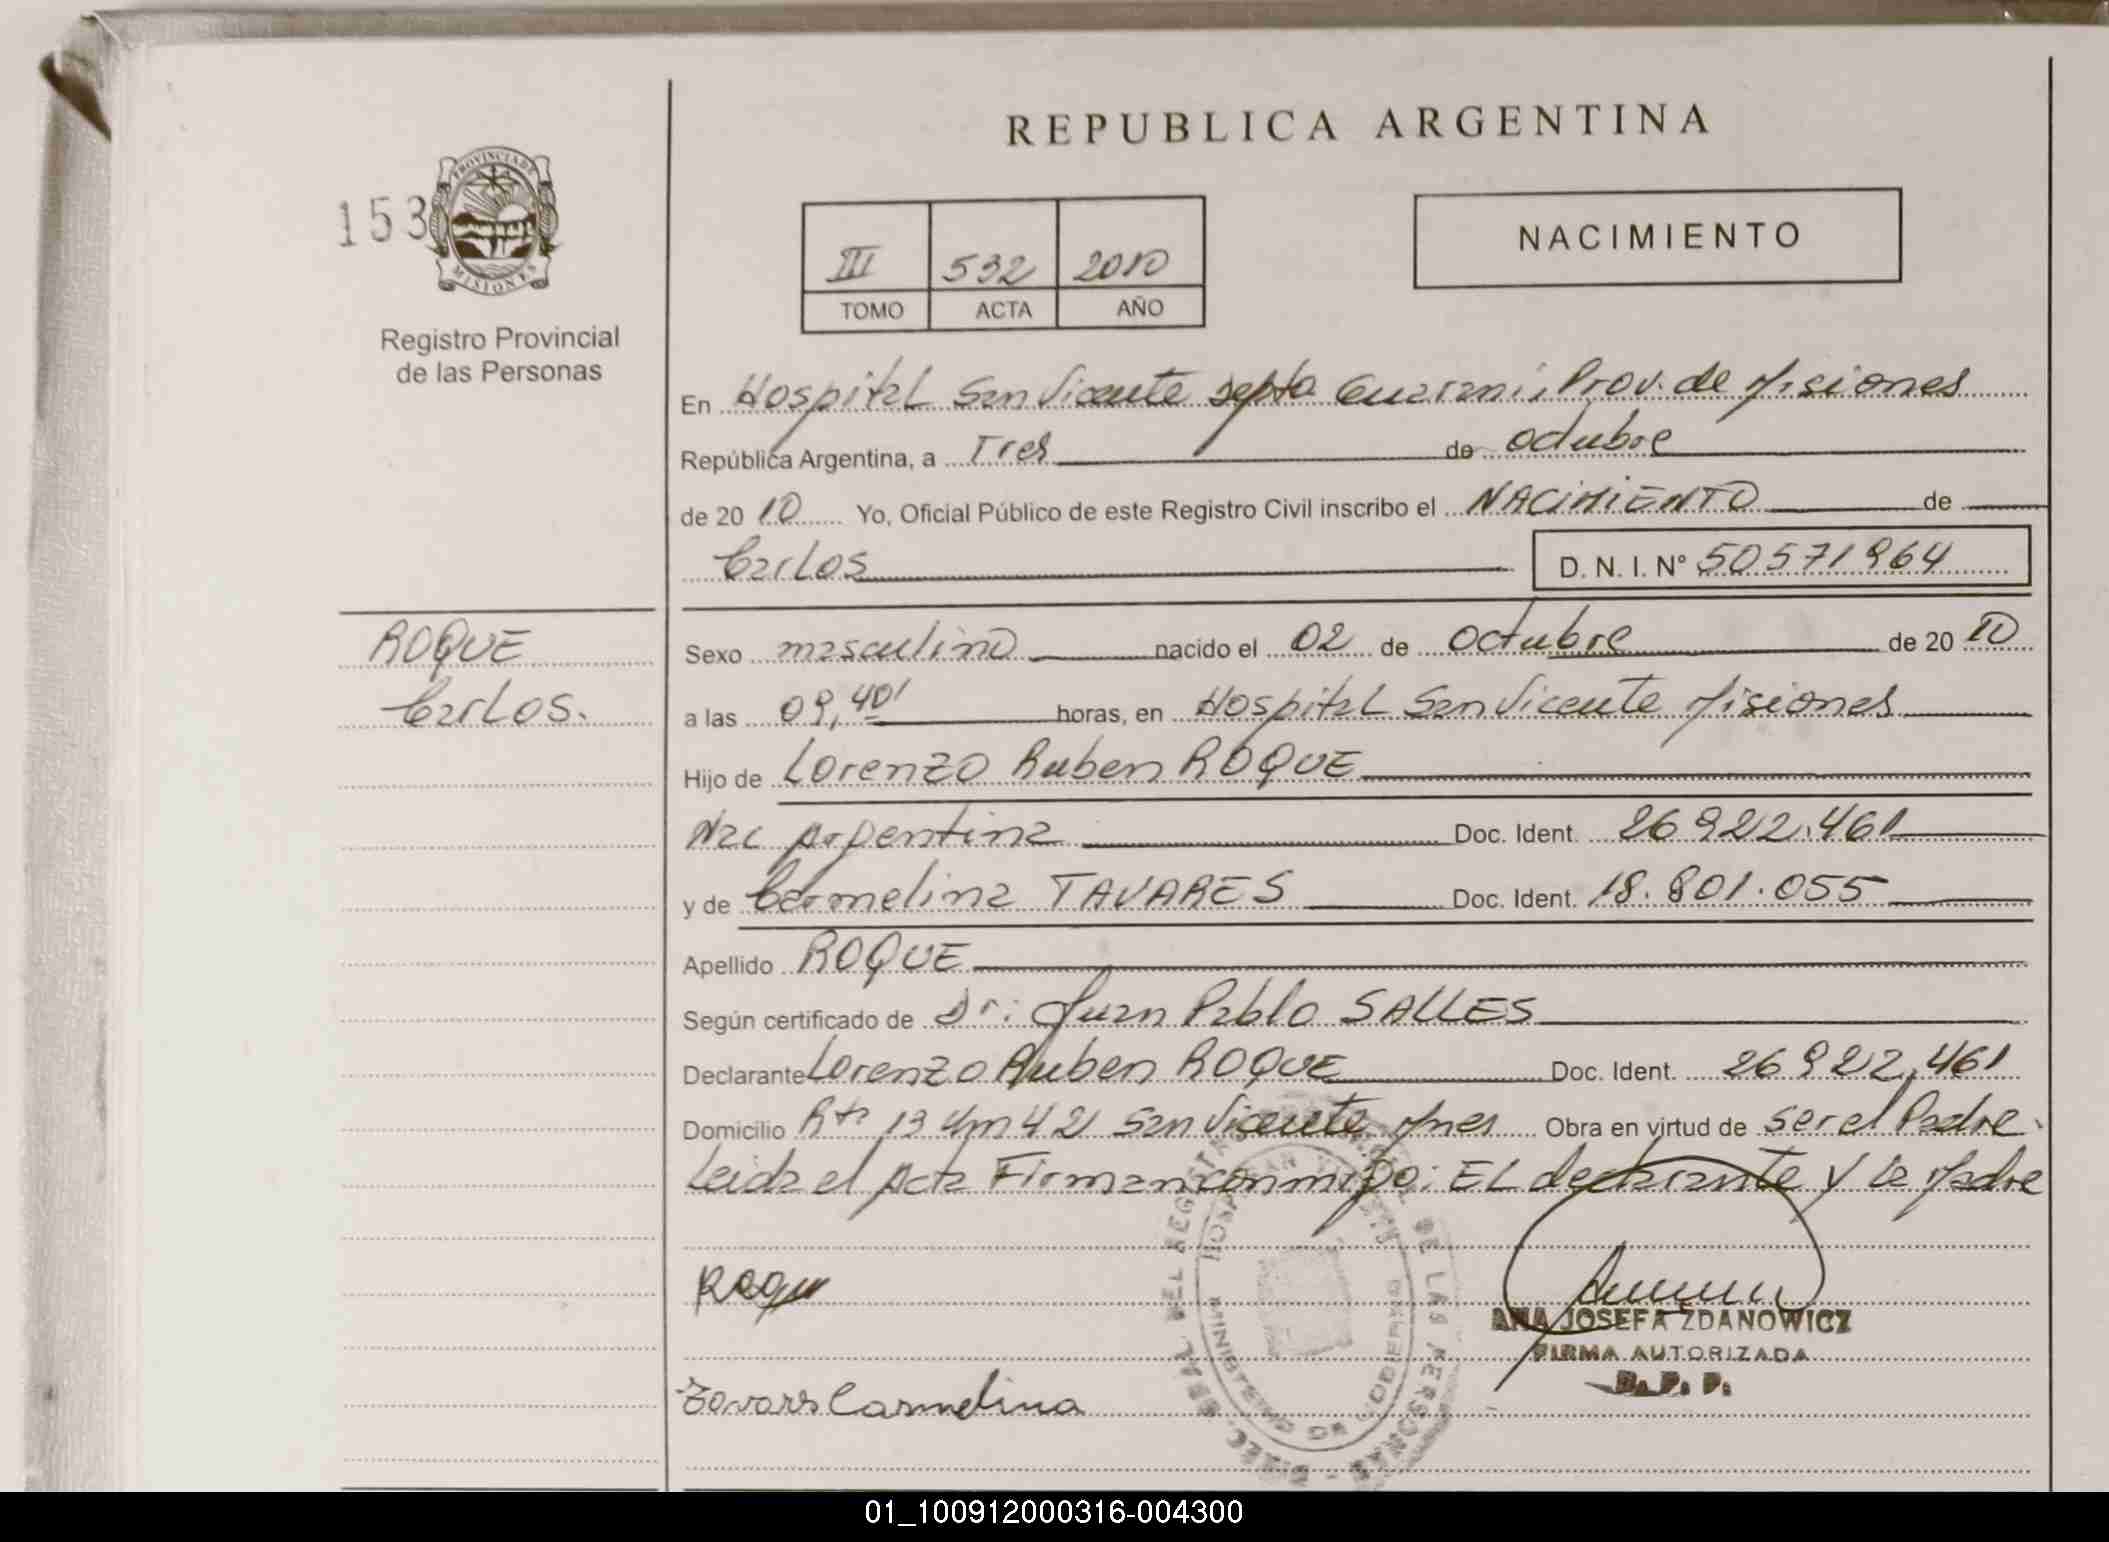 REPUBLICA ARGENTINA
153
PROVINCIA DE
MISIONES
Registro Provincial
de las Personas
III 532 2010
TOMO ACTA AÑO
NACIMIENTO
En Hospital San Vicente Depto Guarani, Prov. de Misiones
República Argentina, a Tres de octubre
de 2010 Yo, Oficial Público de este Registro Civil inscribo el NACIMIENTO de
Carlos D. N. I. N° 50571964
ROQUE
Carlos.
Sexo masculino nacido el 02 de octubre de 2010
a las 09,40' horas, en Hospital San Vicente Misiones
Hijo de Lorenzo Ruben ROQUE
Nac Argentina Doc. Ident. 26922.461
y de Carmelina TAVARES Doc. Ident. 18.801.055
Apellido ROQUE
Según certificado de Dr: Juan Pablo SALLES
Declarante Lorenzo Ruben ROQUE Doc. Ident. 26922.461
Domicilio Rta 13 Km 42 San Vicente Mnes Obra en virtud de ser el Padre.
Leida el Acta Firman conmigo: EL declarante y la Madre
Roque
ANA JOSEFA ZDANOWICZ
FIRMA AUTORIZADA
R. P. P.
Tavares Carmelina
01_100912000316-004300